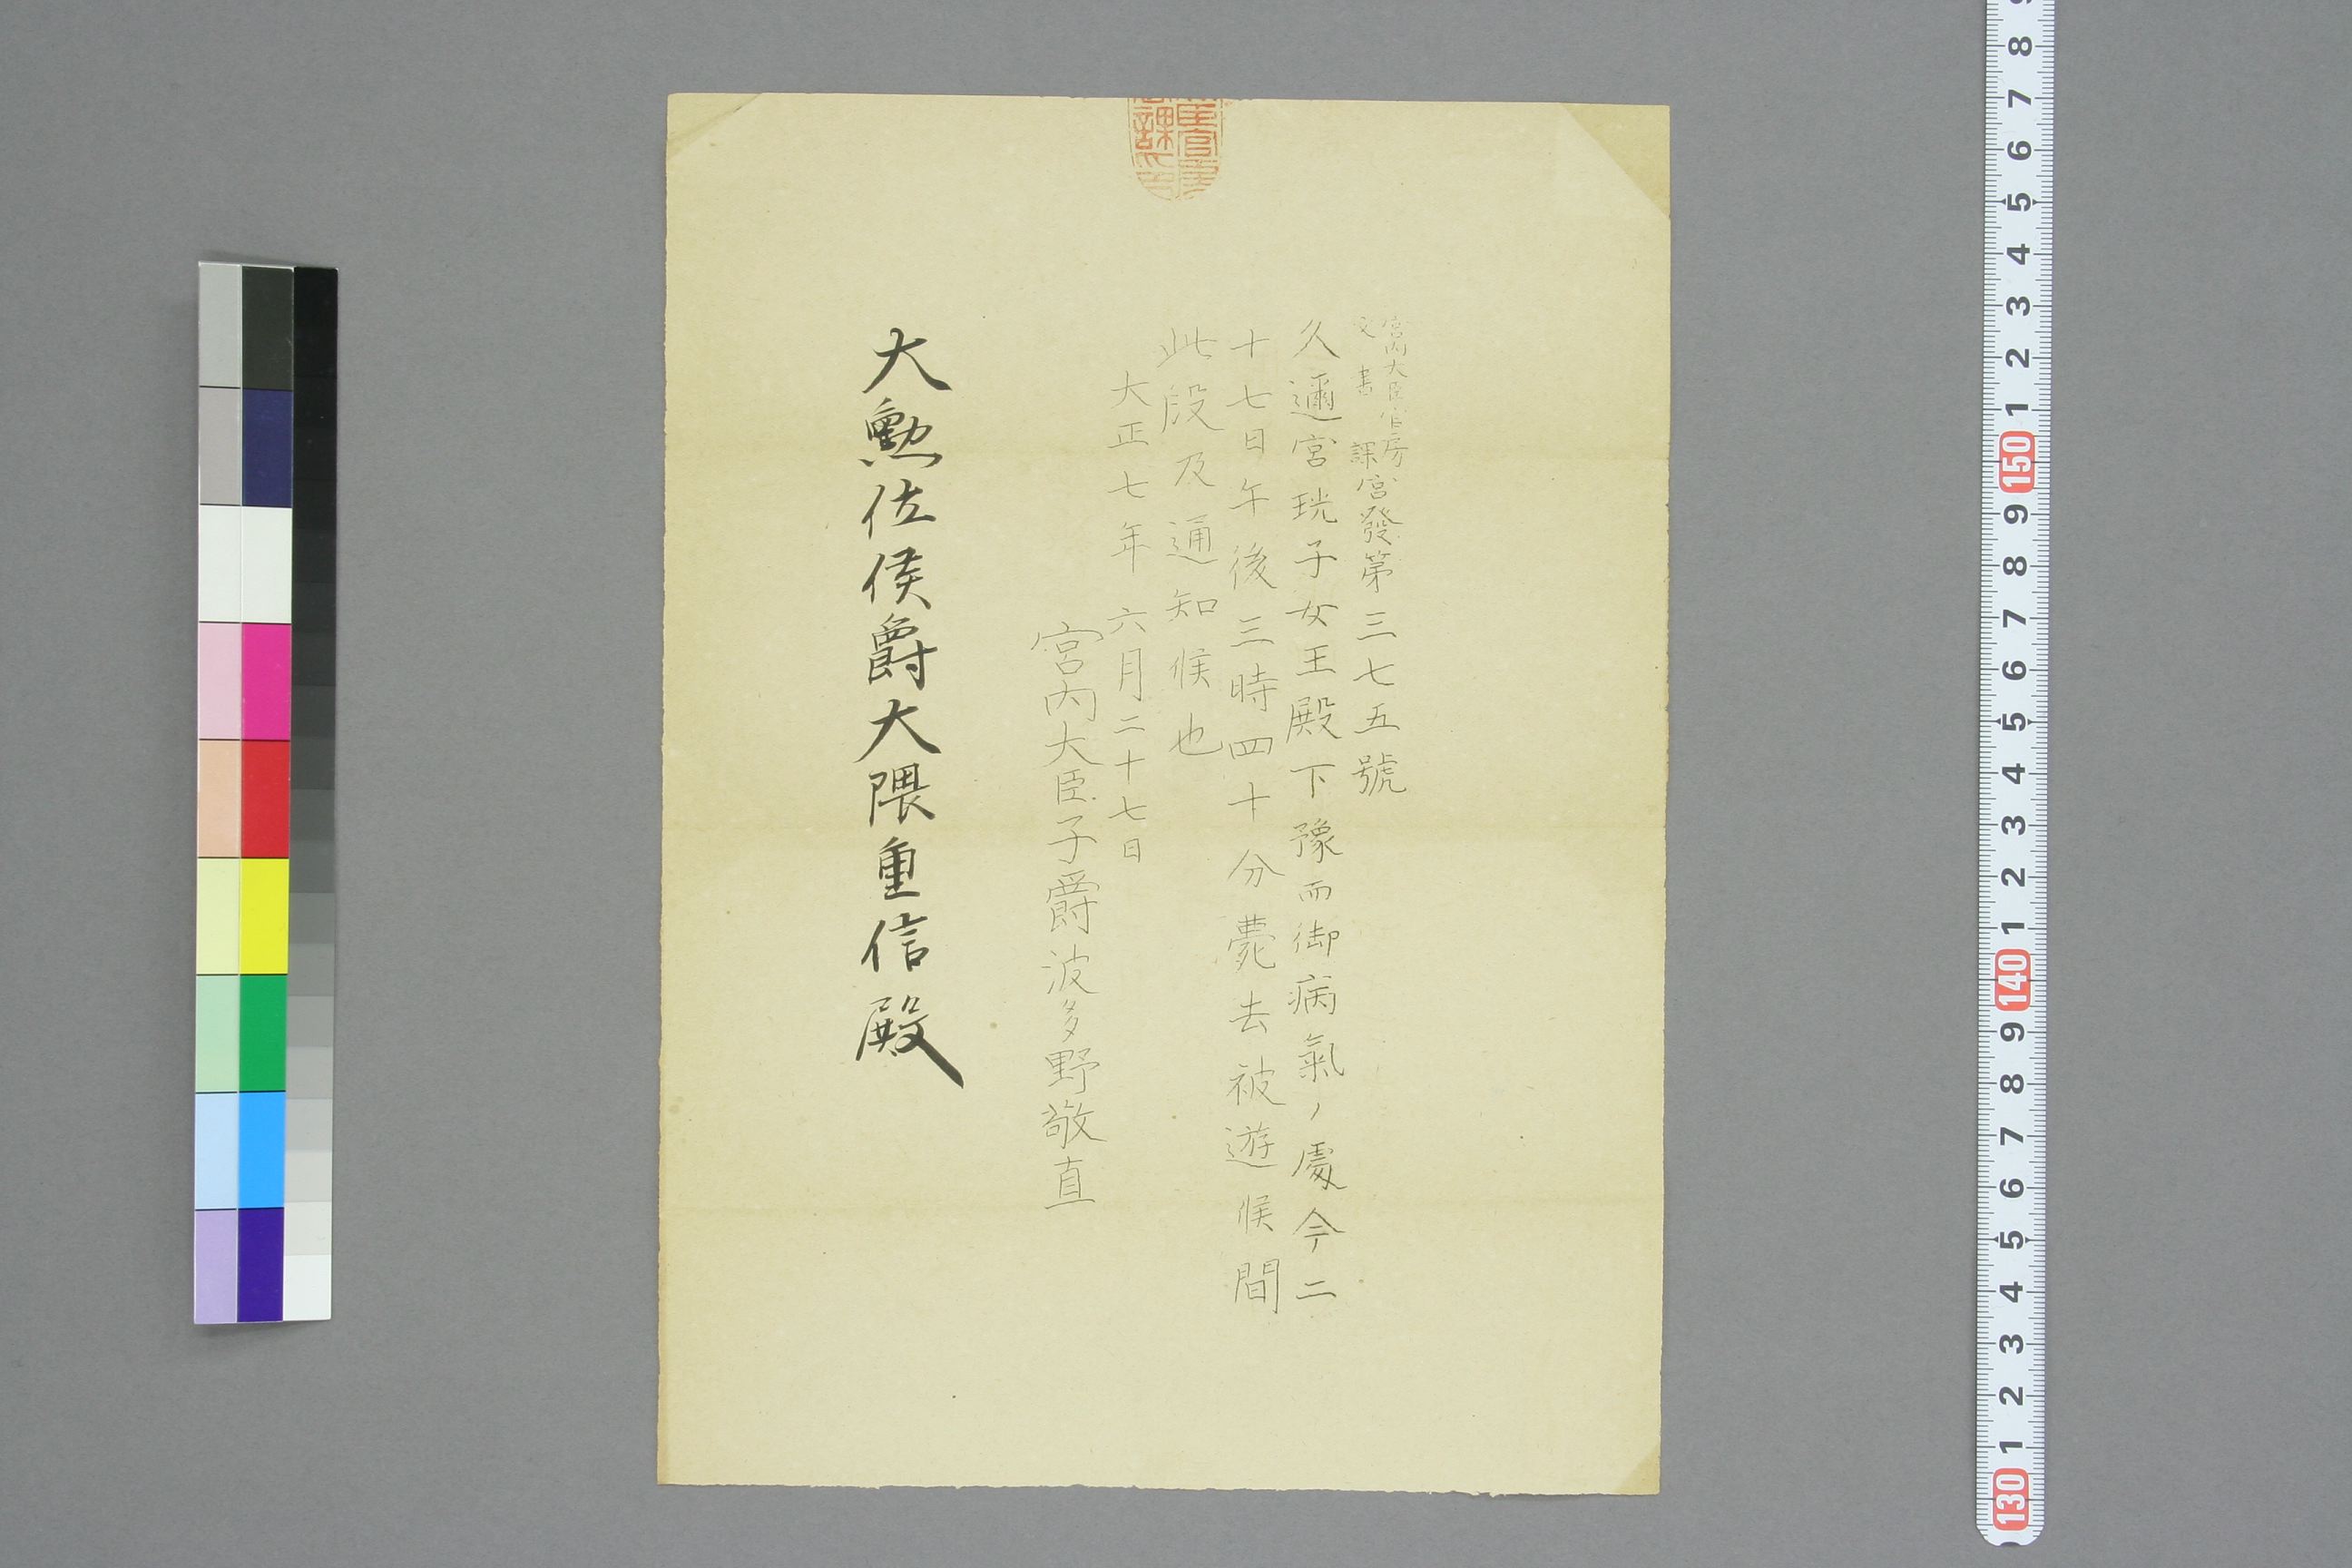 宮内大臣官房
文書課
宮發第三七五號
久邇宮珖子女王殿下豫而御病氣ノ處今二
十七日午後三時四十分薨去被遊候間
此段及通知候也
大正七年六月二十七日
宮内大臣子爵波多野敬直
大勲位侯爵大隈重信殿
9
8
7
6
5
4
3
2
1
150
9
8
7
6
5
4
3
2
1
140
9
8
7
6
5
4
3
2
1
130